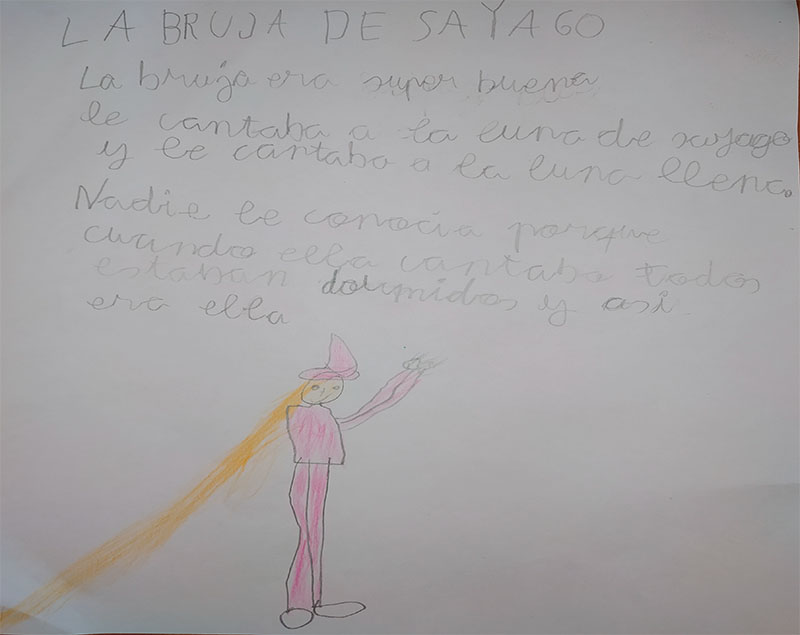 LA BRUJA DE SAYAGO
La bruja era super buena
le cantaba a la luna de sayago
y le cantaba a la luna llena.
Nadie le conocia porque
cuando ella cantaba todos
estaban dormidos y asi
era ella